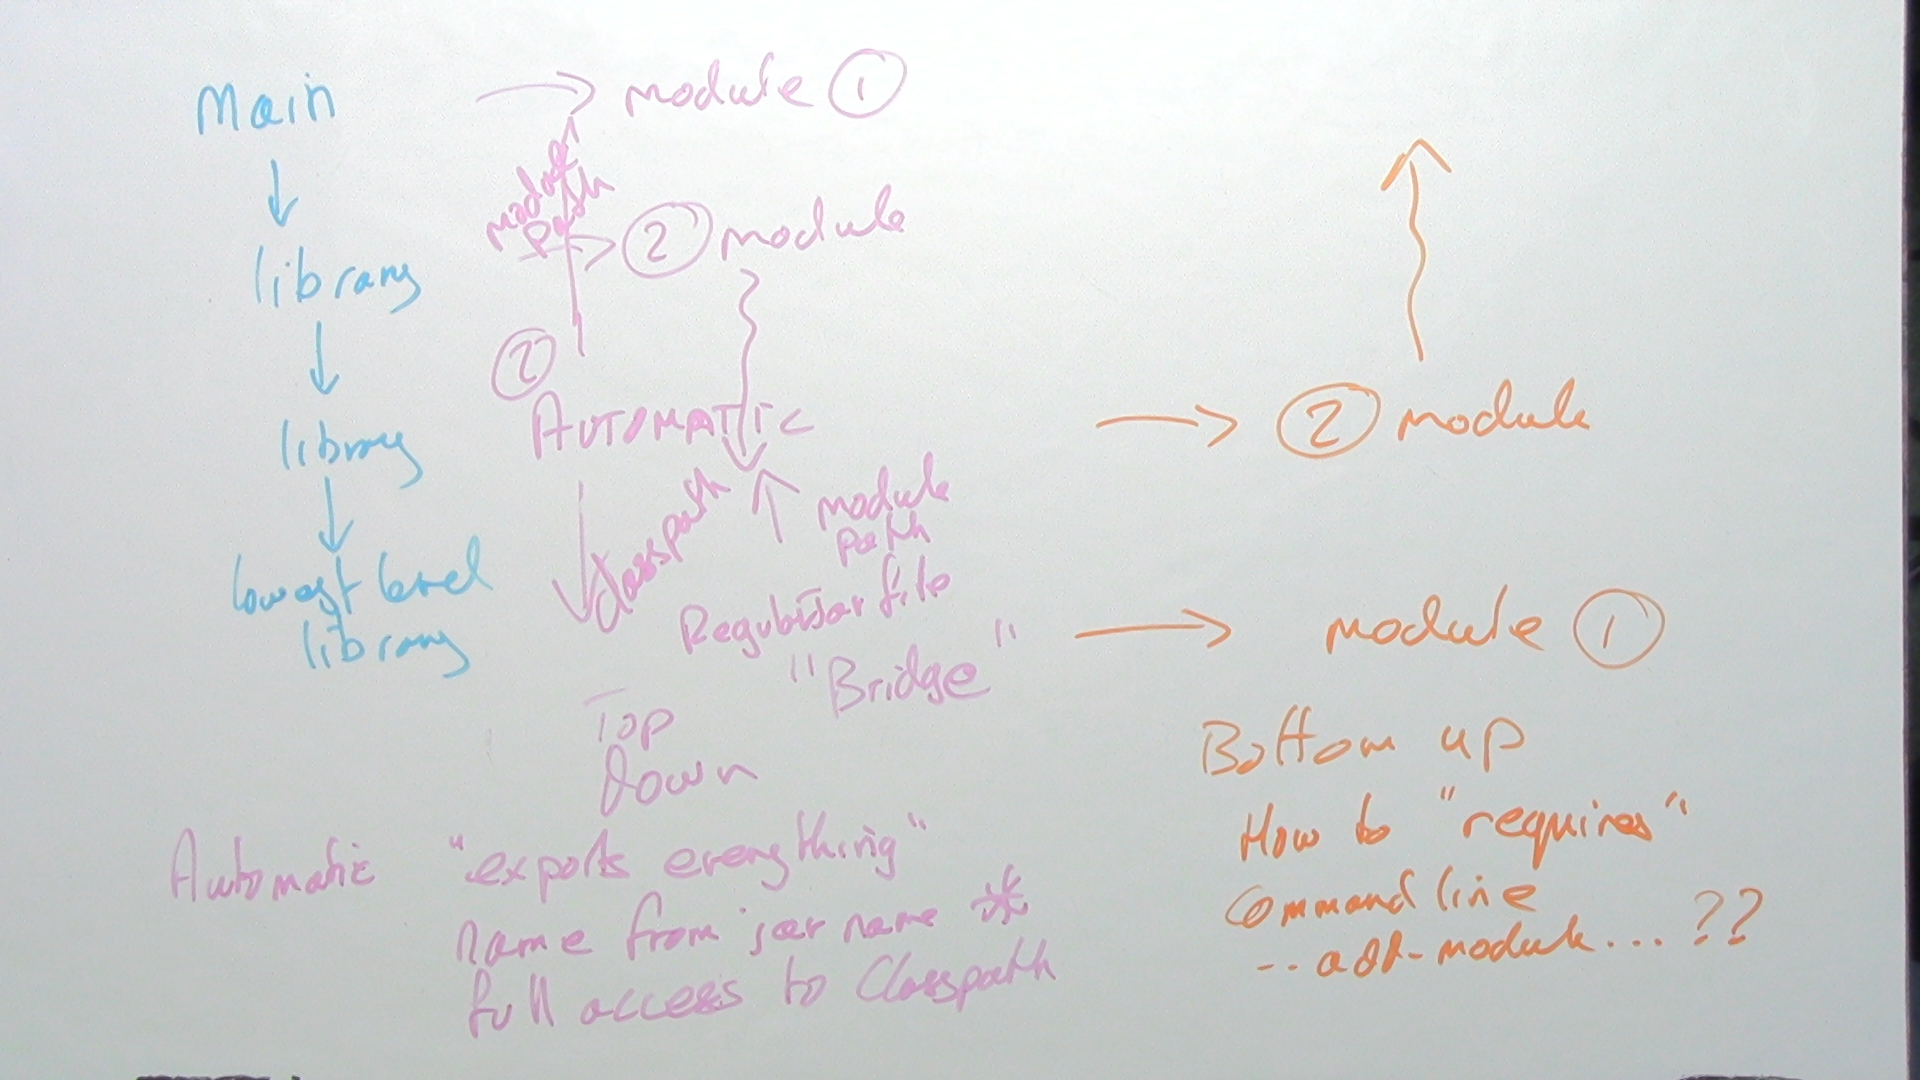 Main
library
library
lowest level
library
module 1
module
path
2 module
2
AUTOMATIC
classpath
module
path
Regular jar file
"Bridge"
Top
Down
Automatic "exports everything"
name from jar name *
full access to Classpath
2 module
module 1
Bottom up
How to "requires"
Command line
-- add-module... ??